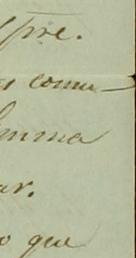 pre.
comu-
mma
ar.
o que